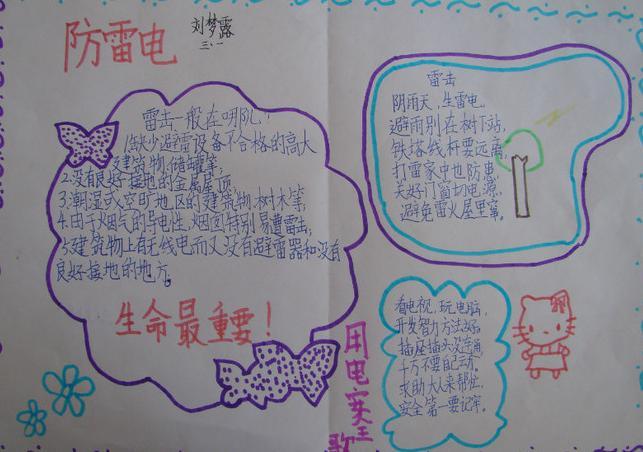 防雷电
刘梦露
三、一
雷击一般在哪儿？
1.缺少避雷设备不合格的高大
建筑物、储罐等；
2.没有良好接地的金属屋顶；
3.潮湿或空旷地区的建筑物、树木等；
4.由于烟气的导电性，烟囱特别易遭雷击；
5.建筑物上有无线电而又没有避雷器和没有
良好接地的地方。
生命最重要！
雷击
阴雨天，生雷电，
避雨别在树下站，
铁塔线杆要远离，
打雷家中也防患，
关好门窗切电源，
避免雷火屋里窜。
用电安全
歌
看电视，玩电脑，
开发智力方法好，
插座插头没接通，
千万不要自己弄。
求助大人来帮忙，
安全第一要记牢。